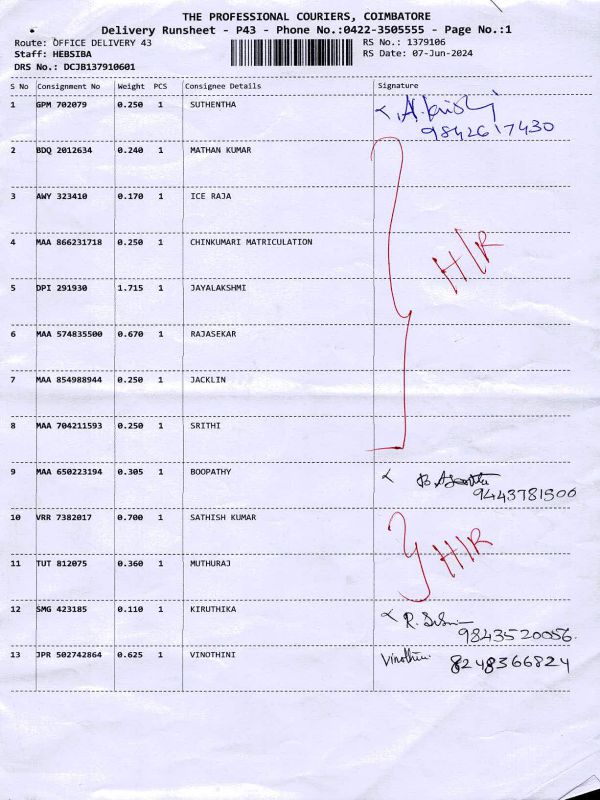 THE PROFESSIONAL COURIERS, COIMBATORE
Delivery Runsheet - P43 - Phone No.:0422-3505555 - Page No.:1
Route: OFFICE DELIVERY 43 RS No.: 1379106
Staff: HEBSIBA RS Date: 07-Jun-2024
DRS No.: DCJB137910601
S No Consignment No Weight PCS Consignee Details Signature
1 GPM 702079 0.250 1 SUTHENTHA
9842617430
2 BDQ 2012634 0.240 1 MATHAN KUMAR
3 AWY 323410 0.170 1 ICE RAJA
4 MAA 866231718 0.250 1 CHINKUMARI MATRICULATION
H/R
5 DPI 291930 1.715 1 JAYALAKSHMI
6 MAA 574835500 0.670 1 RAJASEKAR
7 MAA 854988944 0.250 1 JACKLIN
8 MAA 704211593 0.250 1 SRITHI
9 MAA 650223194 0.305 1 BOOPATHY
9443781500
10 VRR 7382017 0.700 1 SATHISH KUMAR
H/R
11 TUT 812075 0.360 1 MUTHURAJ
12 SMG 423185 0.110 1 KIRUTHIKA R.
9843520056
13 JPR 502742864 0.625 1 VINOTHINI Vinothini 8248366824